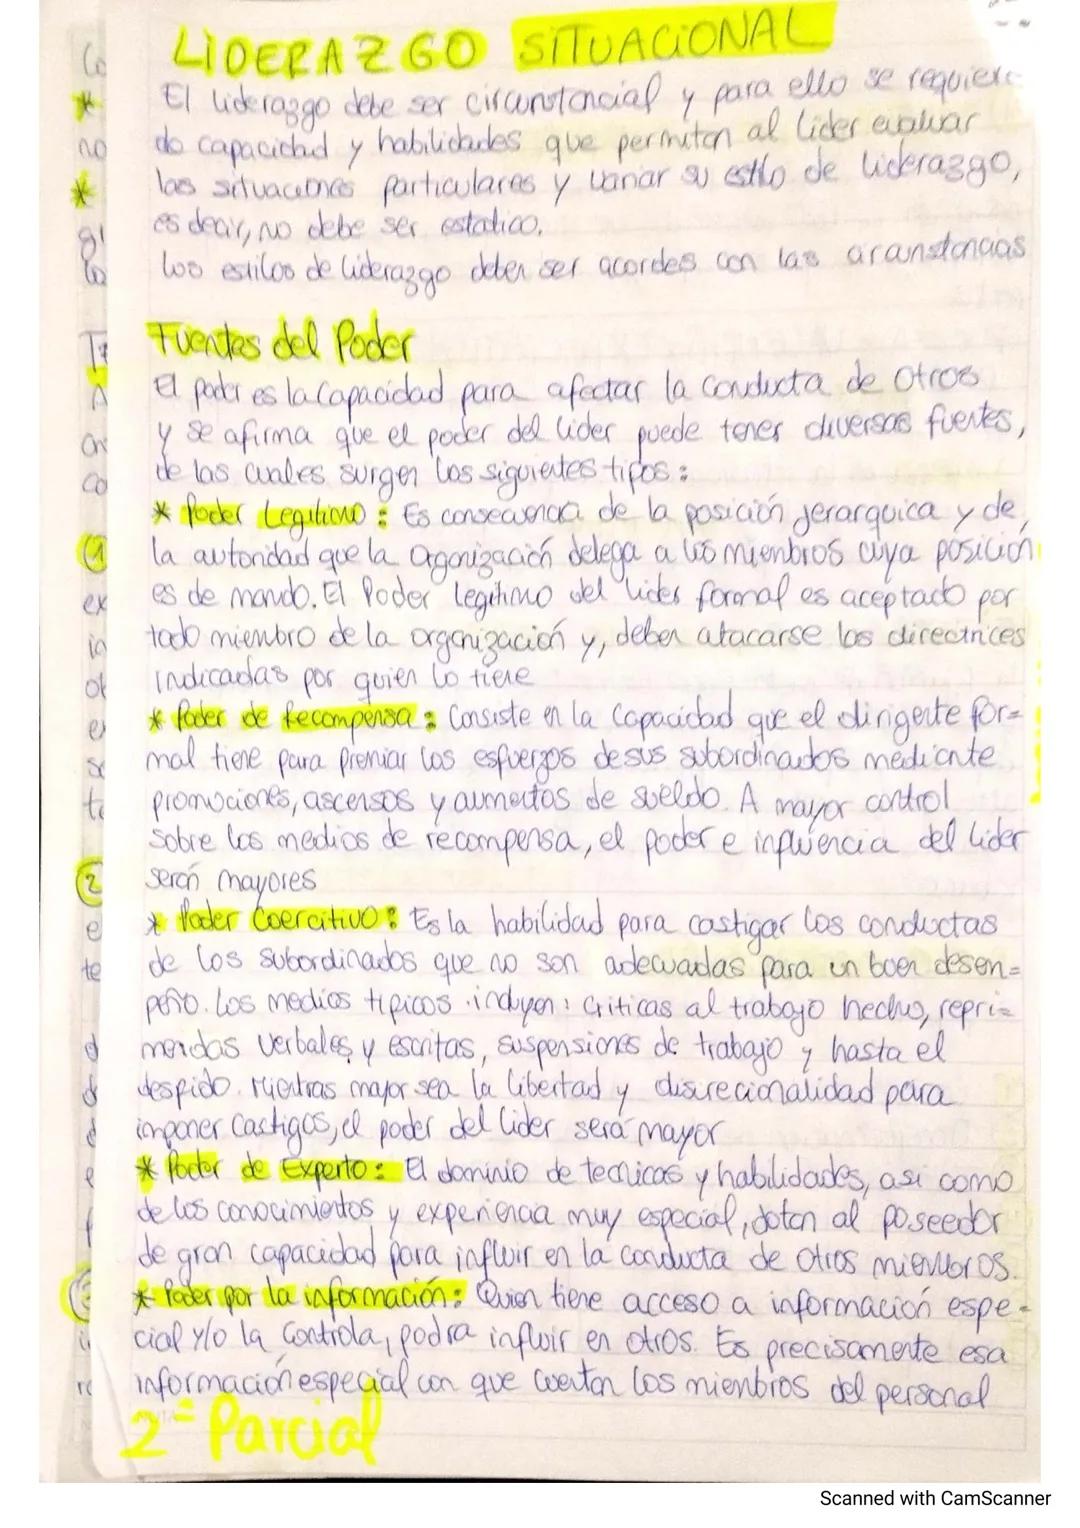 LIDERAZGO SITUACIONAL
El liderazgo debe ser circunstancial y para ello se requiere
do capacidad y habilidades que permitan al lider evaluar
las situaciones particulares y variar su estilo de liderazgo,
es decir, no debe ser estatico.
Los estilos de liderazgo deben ser acordes con las circunstancias
Fuentes del Poder
El poder es la capacidad para afectar la conducta de otros
y se afirma que el poder del lider puede tener diversas fuentes,
de las cuales surgen los siguientes tipos:
* Poder Legitimo: Es consecuencia de la posición jerarquica y de
la autoridad que la organización delega a los miembros cuya posición
es de mando. El Poder legitimo del lider formal es aceptado por
todo miembro de la organización y, deben atacarse las directrices
indicadas por quien lo tiene
* Poder de Recompensa: Consiste en la capacidad que el dirigente for=
mal tiene para premiar los esfuerzos de sus subordinados mediante
promociones, ascensos y aumentos de sueldo. A mayor control
sobre los medios de recompensa, el poder e influencia del lider
serán mayores
* Poder Coercitivo: Es la habilidad para castigar las conductas
de los subordinados que no son adecuadas para un buen desem=
peño. Los medios tipicos incluyen: criticas al trabajo hecho, repri=
mendas verbales y escritas, suspensiones de trabajo y hasta el
despido. Mientras mayor sea la libertad y discrecionalidad para
imponer castigos, el poder del lider será mayor
* Poder de Experto: El dominio de tecnicas y habilidades, asi como
de los conocimientos y experiencia muy especial, dotan al poseedor
de gran capacidad para influir en la conducta de otros miembros.
* Poder por la información: Quien tiene acceso a información espe-
cial y/o la controla, podra influir en otros. Es precisamente esa
información especial con que cuentan los miembros del personal
2º Parcial
Scanned with CamScanner